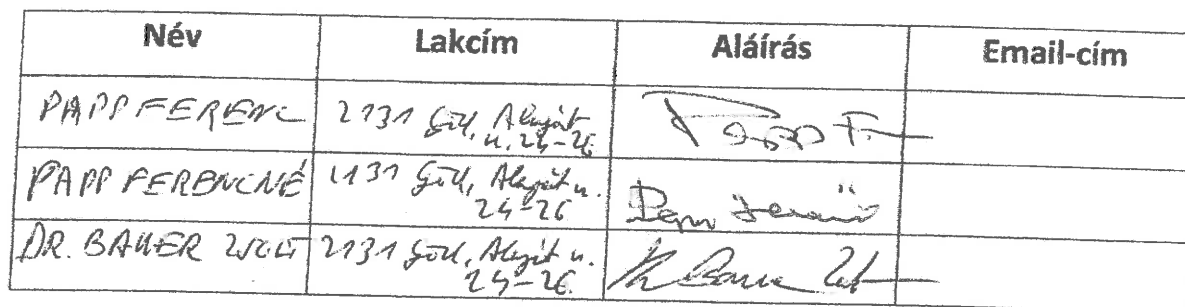 Név Lakcím Aláírás Email-cím
PAPP FERENC 2131 Göd, Alagút
u. 24-26 Papp F
PAPP FERENCNÉ 2131 Göd, Alagút u.
24-26
DR. BAUER ZSOLT 2131 Göd, Alagút u.
24-26.